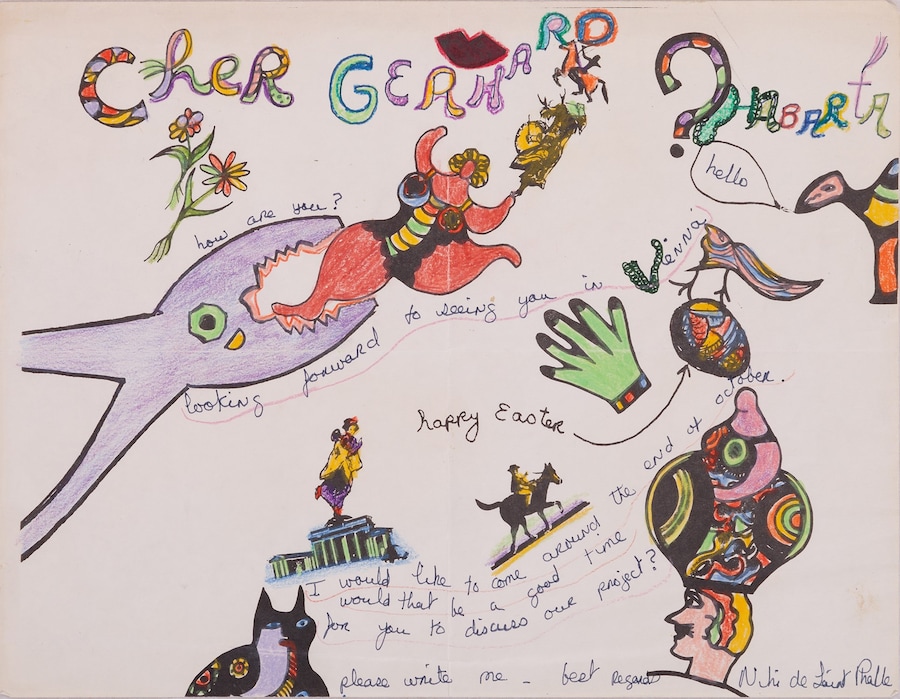 Cher GERHARD ? HABARTA
hello
how are you?
looking forward to seeing you in Vienna
happy Easter
I would like to come around the end of october.
would that be a good time
for you to discuss our project?
please write me - best regards
Niki de Saint Phalle